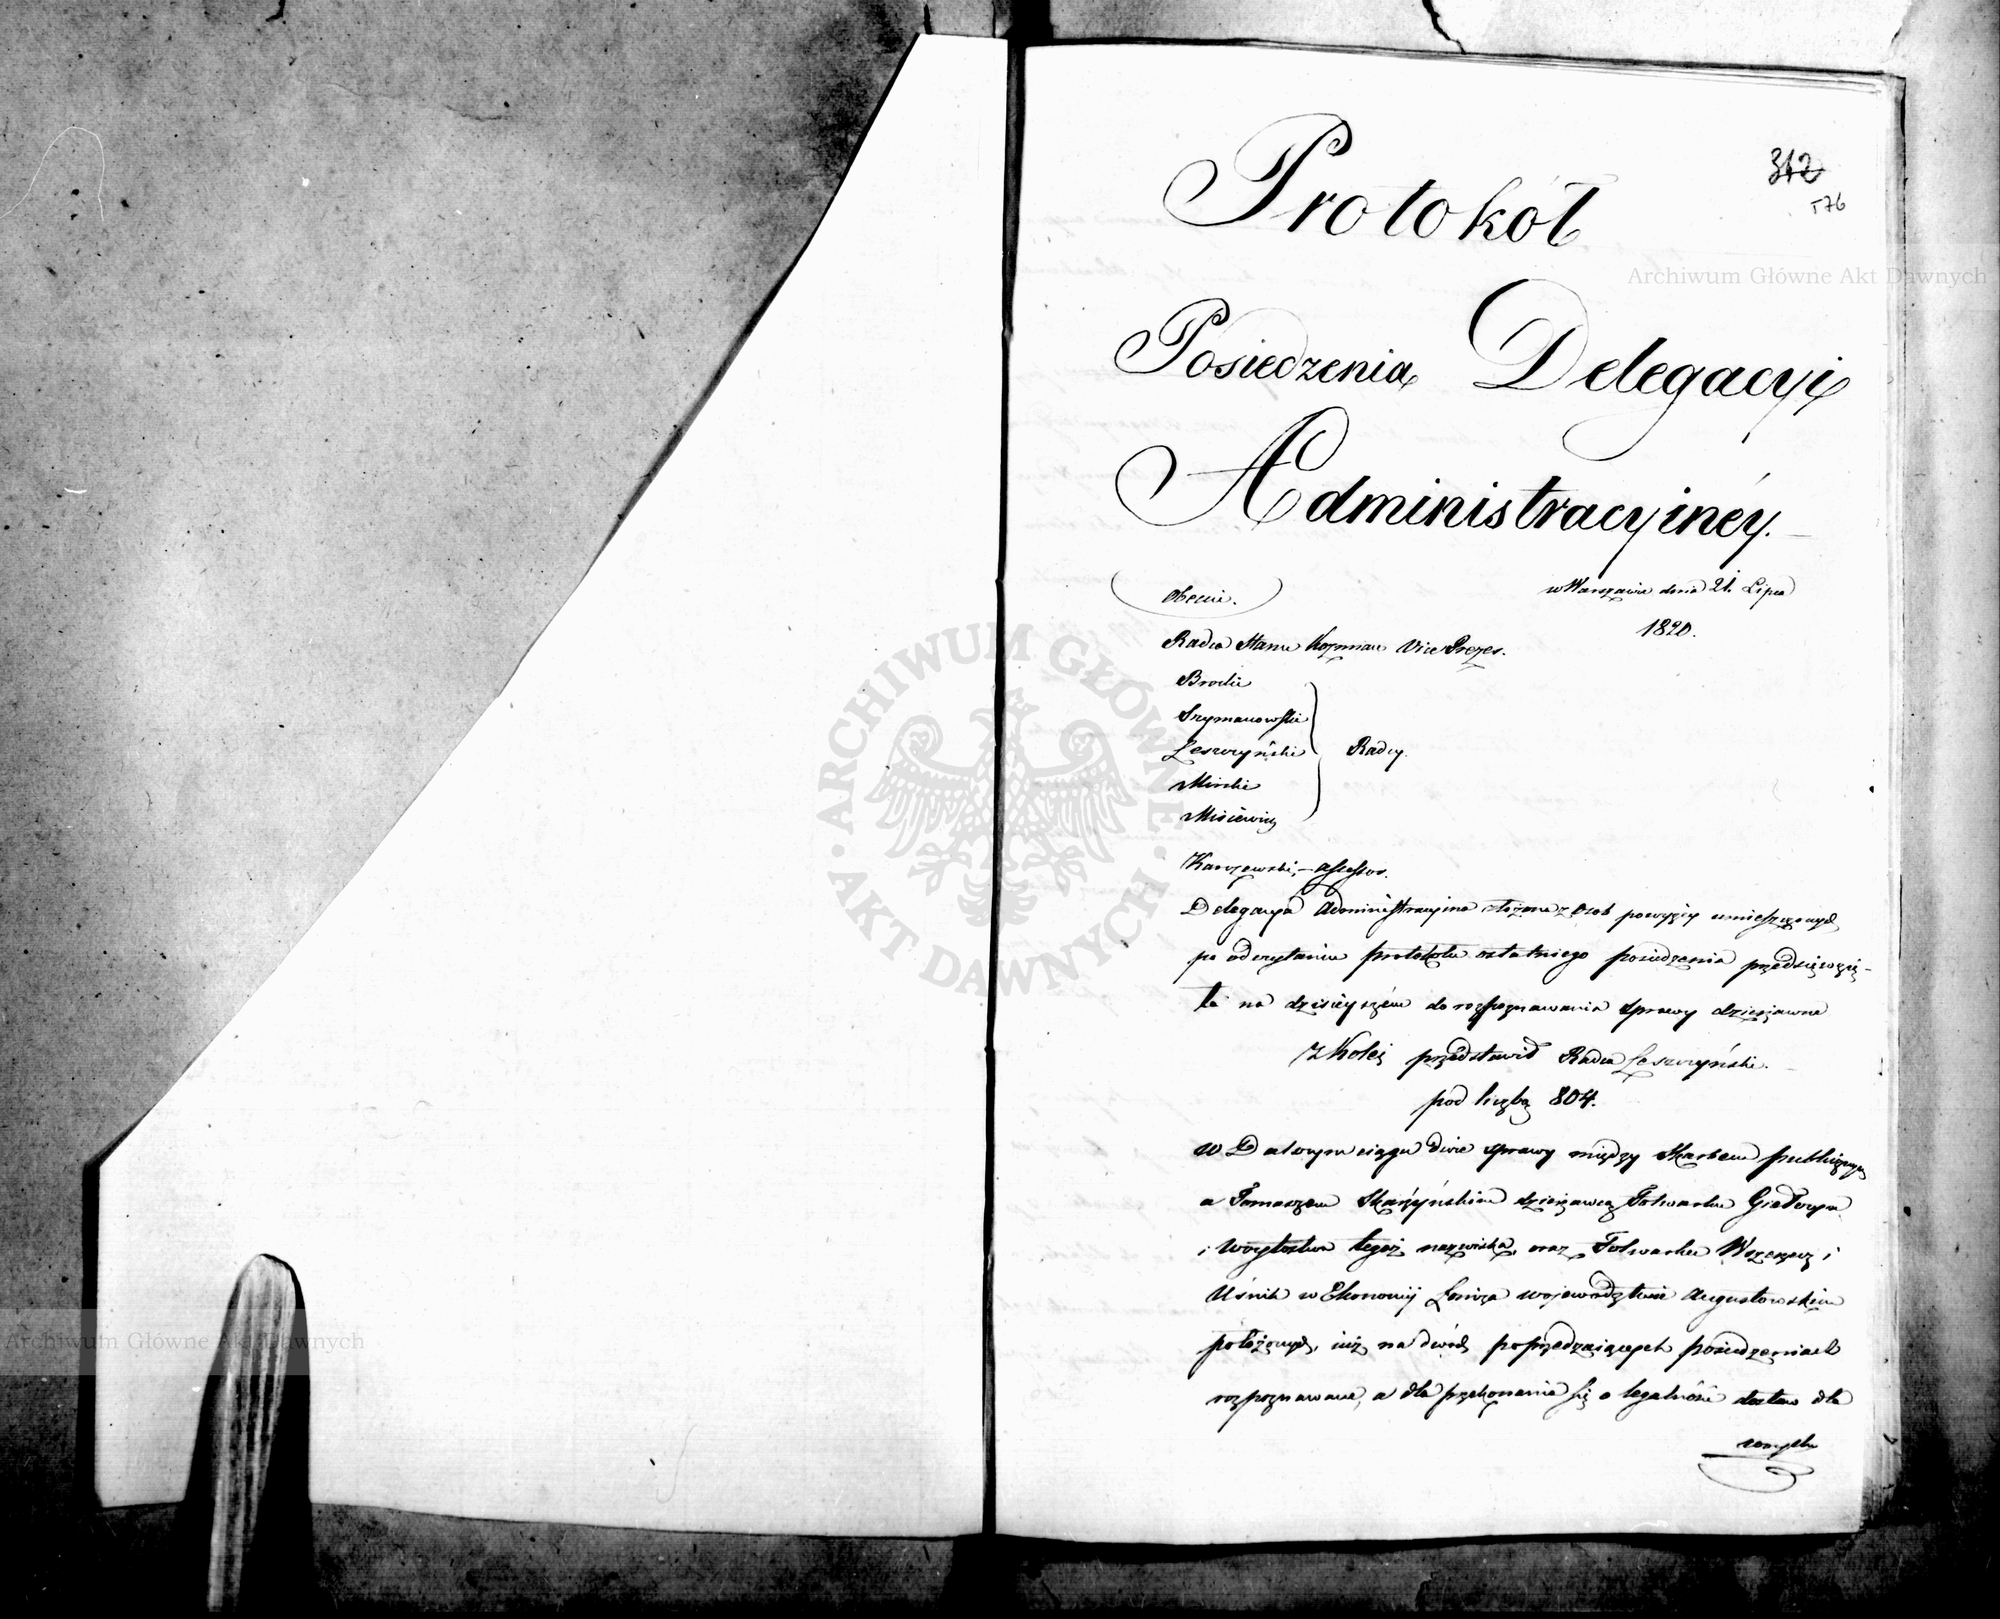 312
176
Protokół
Posiedzenia Delegacyi
Administracyinéy.
obecni.
w Warszawie dnia 21. Lipca
1820.
Radca Stanu Kozmian Vice Prezes.
Brocki
Szymanowski
Leszczyński
Radcy.
Mirski
Misiewicz
Karczewski, – assessor.
Delegacya Administracyina złożona z osob powyżéy umieszczonych
po odczytaniu protokołu ostatniego posiedzenia przedsięwzię-
ła na dzisiéyszém do rozpoznawania sprawy dzierżawne
z Kolei przedstawił Radca Leszczyński.
pod liczbą 804.
w Dalszym ciągu dwie sprawy między Skarbem publicznym
a Tomaszem Skarżyńskim dzierżawcą Folwarku Giełczyn
i Wóytostwa tegoż nazwiska, oraz Folwarku Wszerzecz i
Uśnik w Ekonomij Łomża wojewodztwie Augustowskim
położonych, iuż na dwóch poprzedzaiących posiedzeniach
rozpoznawane, a dla przekonania się o legalności dostaw dla
woyska
Archiwum Główne Akt Dawnych
Archiwum Główne Akt Dawnych
ARCHIWUM GŁÓWNE · AKT DAWNYCH ·